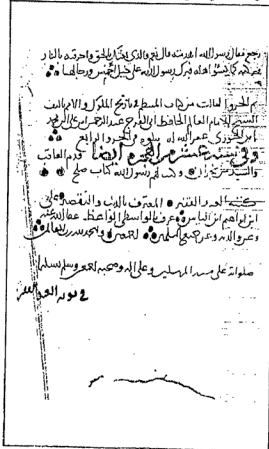 رجع فقال يا رسول الله احرقته قال نعم والذي بعثك بالحق واحرقه بالنار
رسول الله على خيل احمس ورجالها
تم الجزو الثالث من كتاب المنتظم في تاريخ الملوك والامم تاليف
الشيخ الامام العالم الحافظ ابي الفرج عبد الرحمن بن علي بن محمد
ابن الجوزي غفر الله له ويتلوه في الجزو الرابع
وفي سنة عشر من الهجرة ايضا قدم العاقب
والسيد من نجران وكتب لهم رسول الله كتاب صلح
كتبه العبد الفقير المعترف بالذنب والتقصير علي
ابن ابراهيم ابن الياس عرف بالواسطي الواعظ عفا الله عنه
وعن والديه وعن جميع المسلمين اجمعين والحمد لله رب العالمين
صلواته على سيد المرسلين وعلى اله وصحبه اجمعين وسلم تسليما
في نوبة العبد الفقير